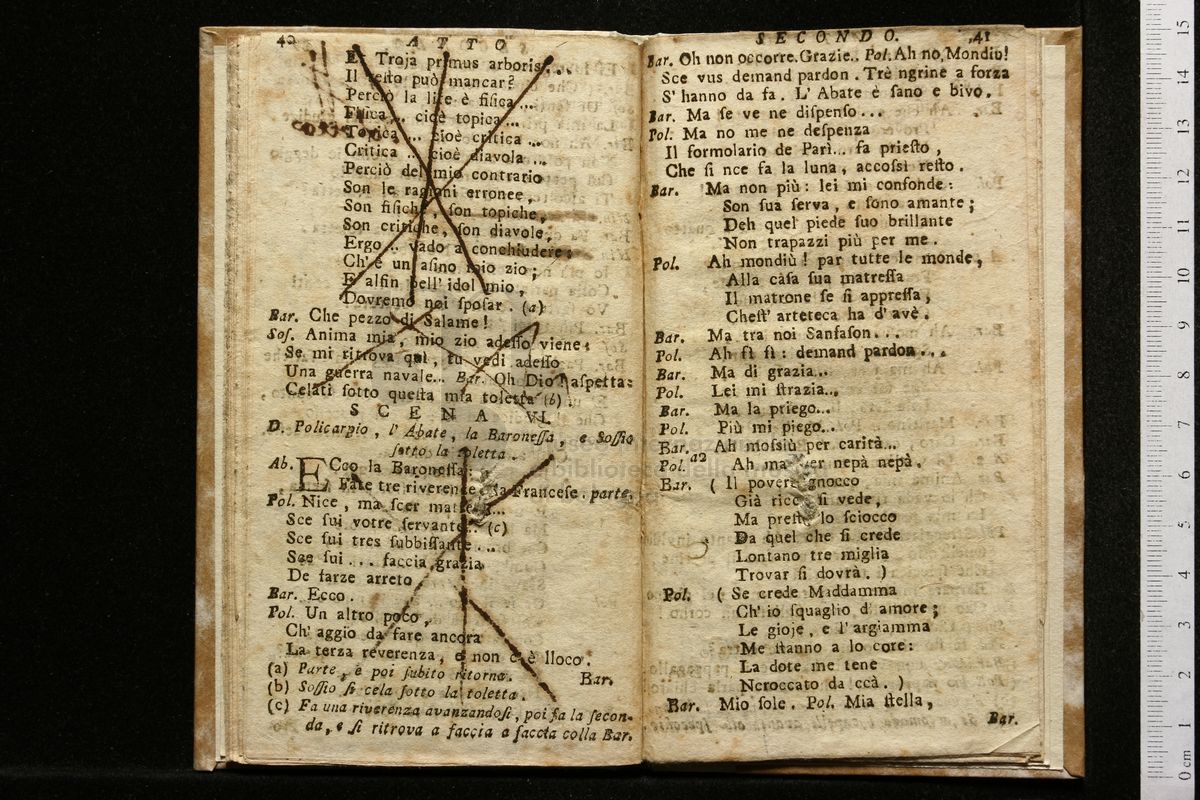 40 ATTO
E Troja primus arboris...
Il resto può mancar?
Perciò la lite è fisica...
Fisica... cioè topica...
Topica... cioè critica...
Critica... cioè diavola...
Perciò del mio contrario
Son le ragioni erronee,
Son fisiche, son topiche,
Son critiche, son diavole,
Ergo... vado a conchiudere:
Ch'è un asino mio zio;
E alfin dell' idol mio,
Dovremo noi sposar. (a)
Bar. Che pezzo di Salame!
Sos. Anima mia, mio zio adesso viene:
Se mi ritrova quì, tu vedi adesso
Una guerra navale... Bar. Oh Dio! aspetta:
Celati sotto questa mia toletta (b).
SCENA VI.
D. Policarpio, l'Abate, la Baronessa, e Sossio
sotto la toletta.
Ab. ECco la Baronessa:
Fate tre riverenze Francese. parte.
Pol. Nice, ma scer
Sce sui votre servante... (c)
Sce sui tres subbissante...
Sce sui... faccia grazia
De farze arreto
Bar. Ecco.
Pol. Un altro poco,
Ch' aggio da fare ancora
La terza reverenza, e non c'è lloco.
(a) Parte, e poi subito ritorna. Bar.
(b) Sossio si cela sotto la toletta.
(c) Fa una riverenza avanzandosi, poi fa la secon-
da, e si ritrova a faccia a faccia colla Bar.
SECONDO. 41
Bar. Oh non occorre. Grazie.. Pol. Ah no, Mondiù!
Sce vus demand pardon. Trè ngrine a forza
S' hanno da fa. L' Abate è sano e bivo.
Bar. Ma se ve ne dispenso...
Pol: Ma no me ne despenza
Il formolario de Parì... fa priesto,
Che si nce fa la luna, accossì resto.
Bar. Ma non più: lei mi confonde:
Son sua serva, e sono amante;
Deh quel piede suo brillante
Non trapazzi più per me.
Pol. Ah mondiù! par tutte le monde,
Alla càsa sua matressa
Il matrone se si appressa,
Chest' arteteca ha d' avè.
Bar. Ma tra noi Sanfason...
Pol. Ah sì sì: demand pardon...
Bar. Ma di grazia...
Pol. Lei mi strazia...
Bar. Ma la priego...
Pol. Più mi piego...
Bar. Ah mossiù per carità...
Pol. Ah ma nepà nepà.
Bar. ( Il povero gnocco
Già ricco si vede,
Ma presto lo sciocco
Da quel che si crede
Lontano tre miglia
Trovar si dovrà. )
Pol. ( Se crede Maddamma
Ch' io squaglio d' amore;
Le gioje, e l' argiamma
Me stanno a lo core:
La dote me tene
Ncroccato da ccà. )
Bar. Mio sole. Pol. Mia stella,
Bar.
0 cm 1 2 3 4 5 6 7 8 9 10 11 12 13 14 15